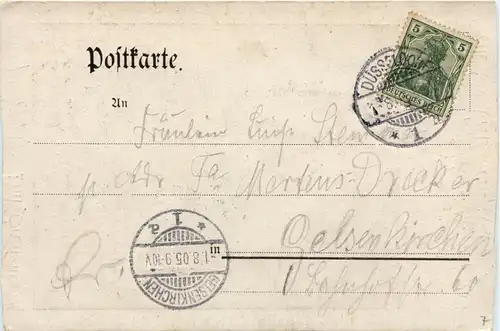 Postkarte.
5 5
DEUTSCHES REICH
DÜSSELDORF
1
An
Fräulein
p. Adr Fa Mertens-Drecker
in Gelsenkirchen
Bahnhofstr 60
* 1 a *
-1.8.05.9-10V.
GELSENKIRCHEN
7